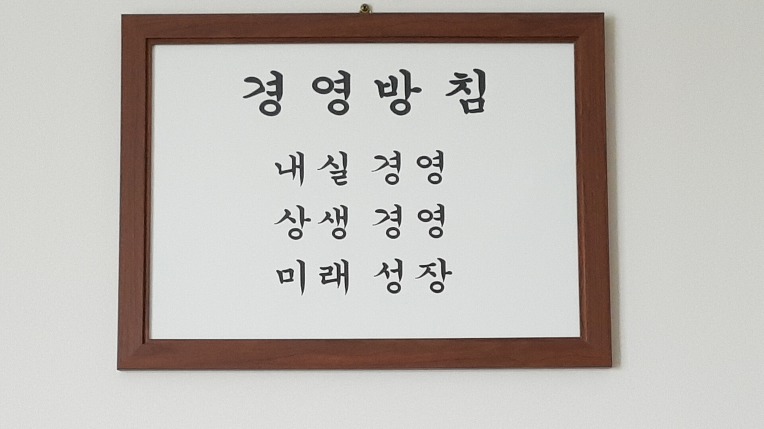 경영방침
내실 경영
상생 경영
미래 성장